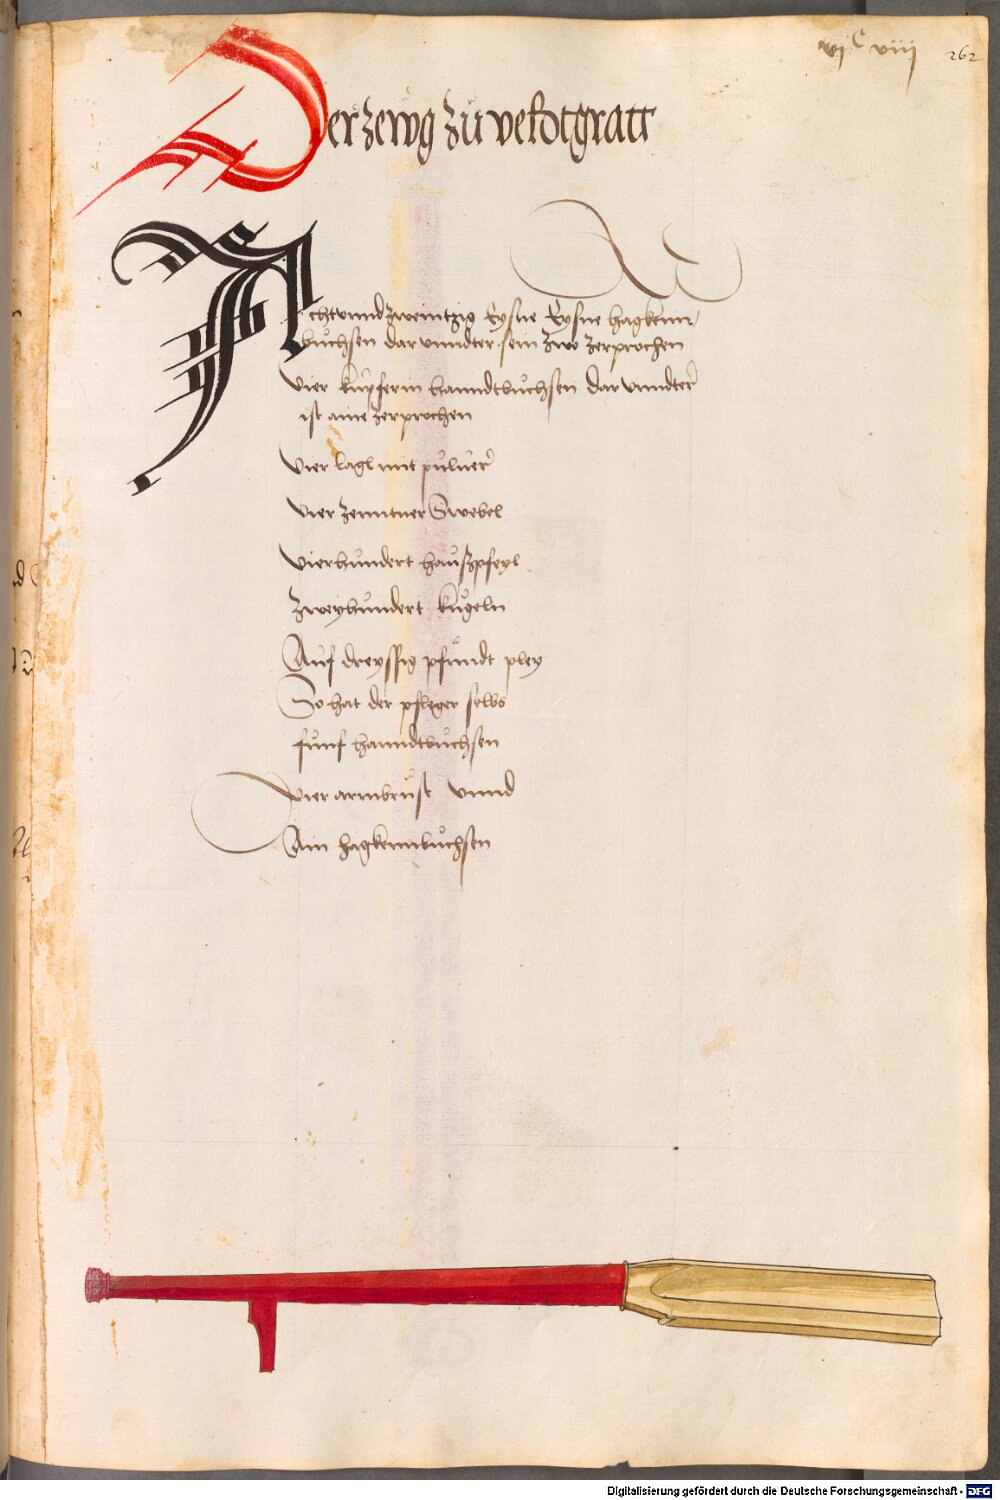 vi C viii 262
Der zewg zů veldtgratt
Achtvnnd zweintzig Eysne hagkenn
bůchsen dar vnndter sein zwo zerprochen
Vier kupferin hanndtbůchsen dar vnndter
ist aine zerprochen
Vier lagl mit puluer
Vier zenntner Swebel
Vierhundert hauszpfeyl
zweyhundert kůgeln
Auf dreyssig pfůndt pley
So hat der pfleger selbs
fůnf hanndtbůchsen
Vier armbrůst vnnd
Ain hagkennbůchsen
Digitalisierung gefördert durch die Deutsche Forschungsgemeinschaft - DFG